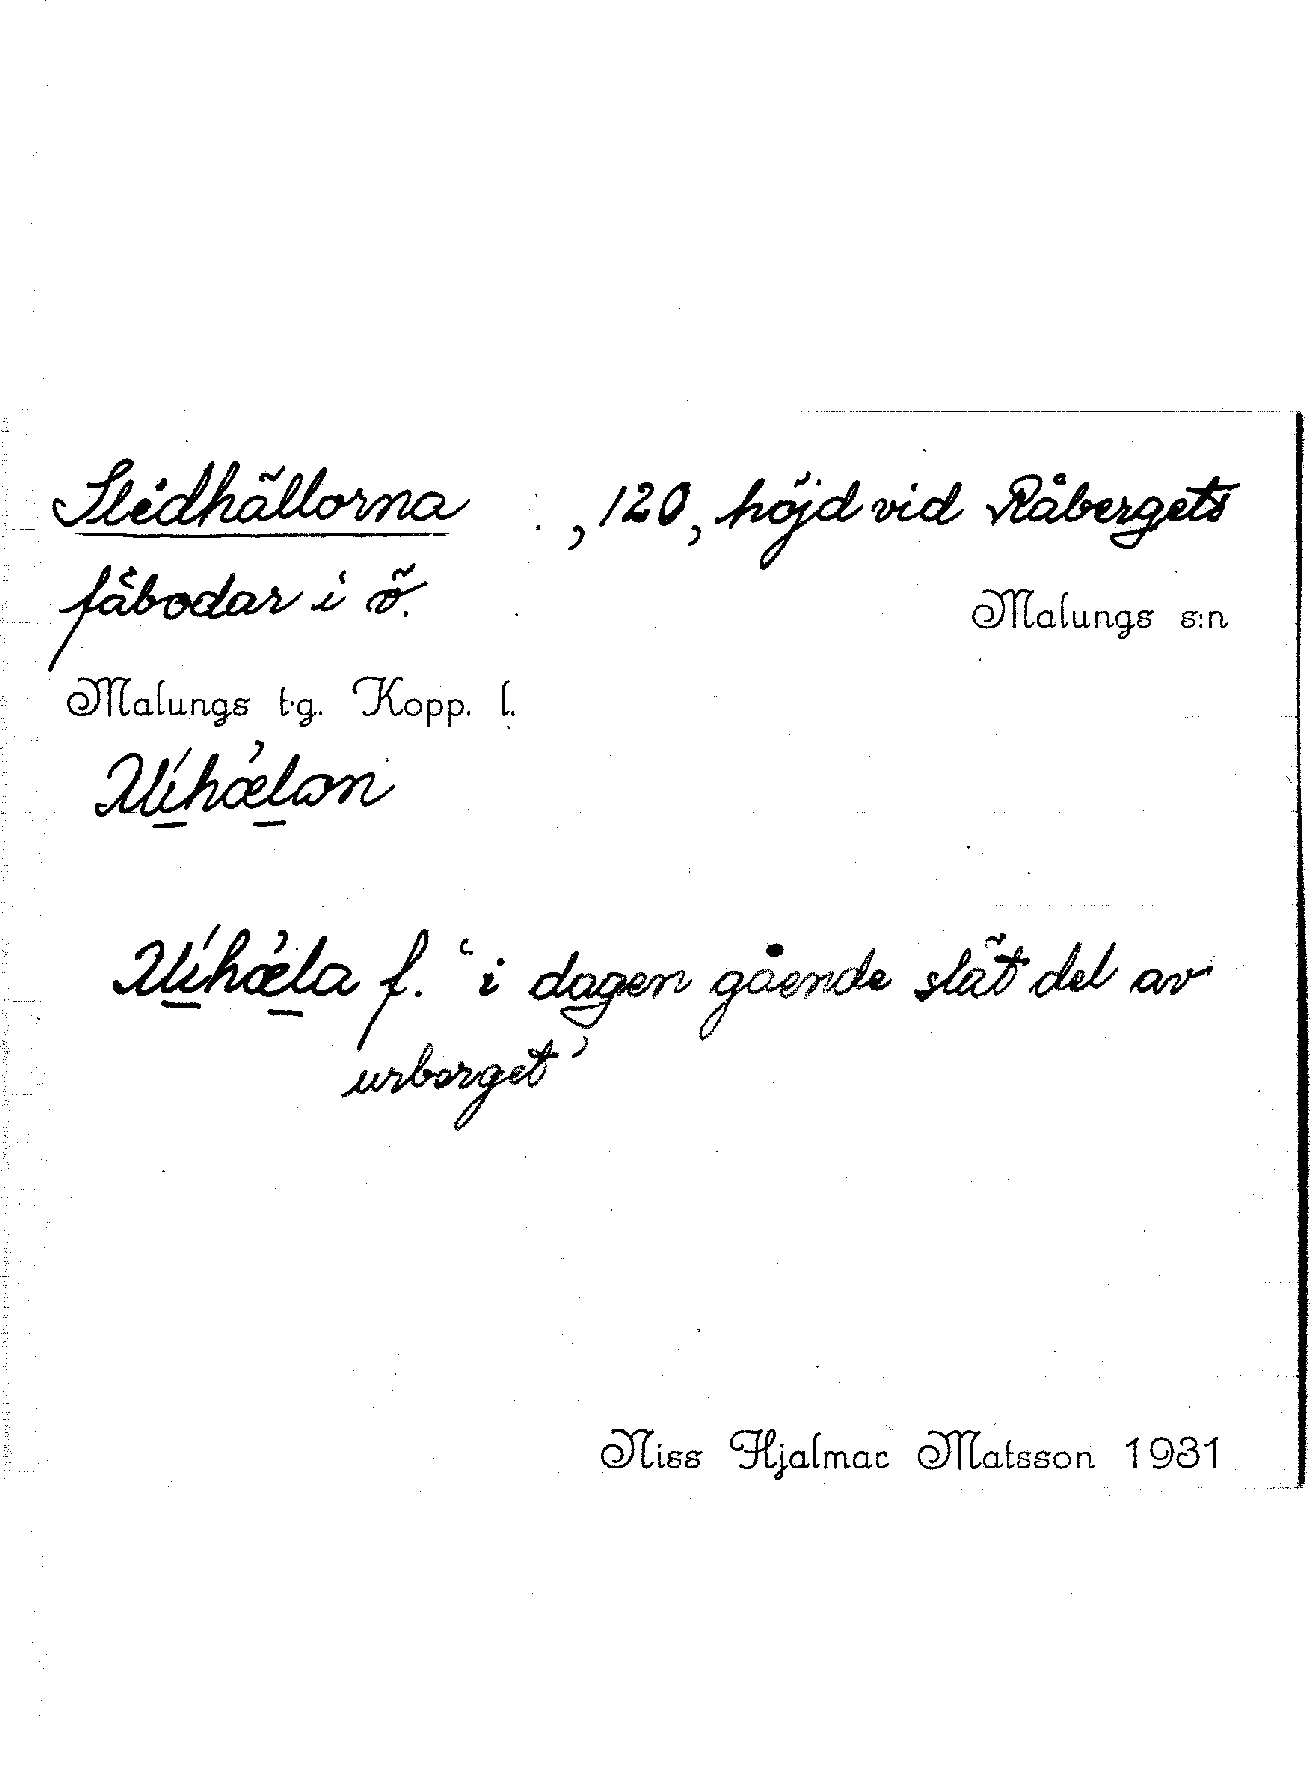 Slédhällorna , 120, höjd vid Råbergets
fäbodar i ö.
Malungs s:n
Malungs t.g. Kopp. l.
f. ‘i dagen gående slät del av
urberget’
Niss Hjalmar Matsson 1931